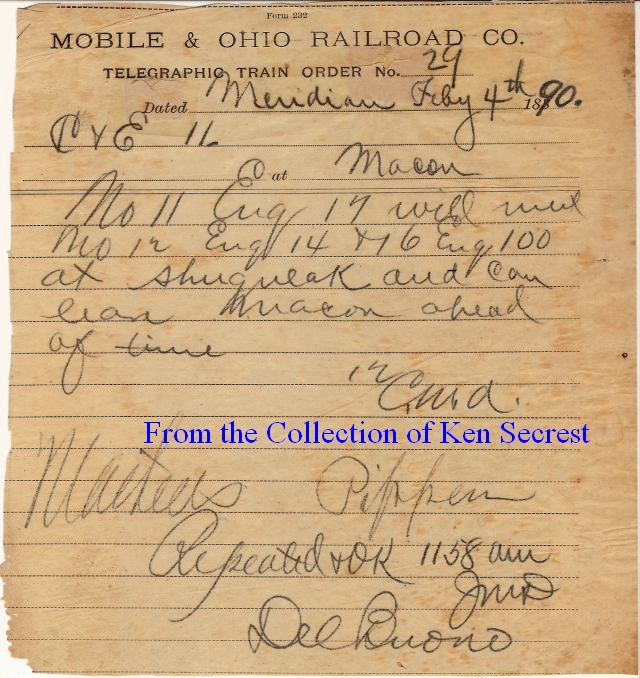 Form 232
MOBILE & OHIO RAILROAD CO.
TELEGRAPHIC TRAIN ORDER No. 29
Dated Meridian Feby 4th 1890.
C & E 11
at Macon
No 11 Eng 17 will meet
No 12 Eng 14 & 16 Eng 100
at Shuqulak and can
leave Macon ahead
of time
12
From the Collection of Ken Secrest
Pippen
Repeated & OK 1158 am
Del Buono